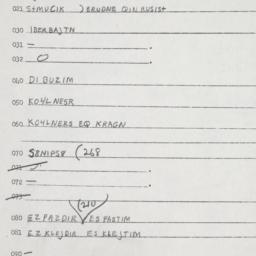 021 SIMUCIK ) BRUDNE QIN RUSIST
030 IDERBAJTN
031 — .
032 O .
040 DI BUZIM
050 KOYLNESR
060 KOYLNERS EQ KRAGN
070 SENIPSE (268
071 — .
072 — .
073
(210)
080 EZ PAZDIR ES PASTIM
081 EZ KLEJDIR ES KLEJTIM
090 —